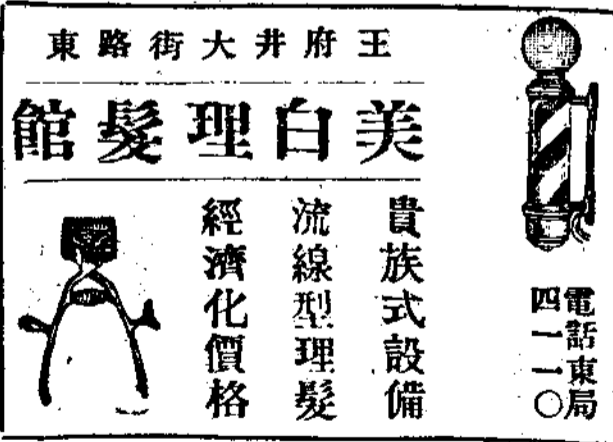 王府井大街路東
美白理髮館
貴族式設備
流線型理髮
經濟化價格
電話東局
四一一〇